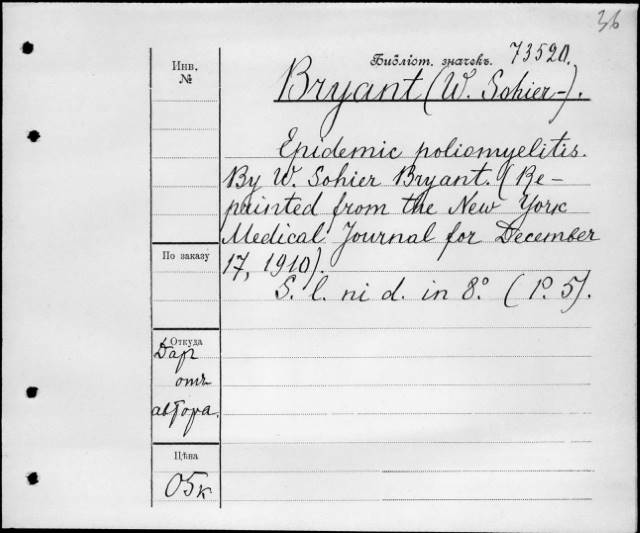 36
Библіот. значекъ. 73520.
Инв.
№
Bryant (W. Sohier-).
Epidemic poliomyelitis.
By W. Sohier Bryant. (Re-
printed from the New York
Medical Journal for December
17, 1910).
S. l. ni d. in 8.° (P. 5).
По заказу
Откуда
Даръ
отъ
автора.
Цѣна
05к